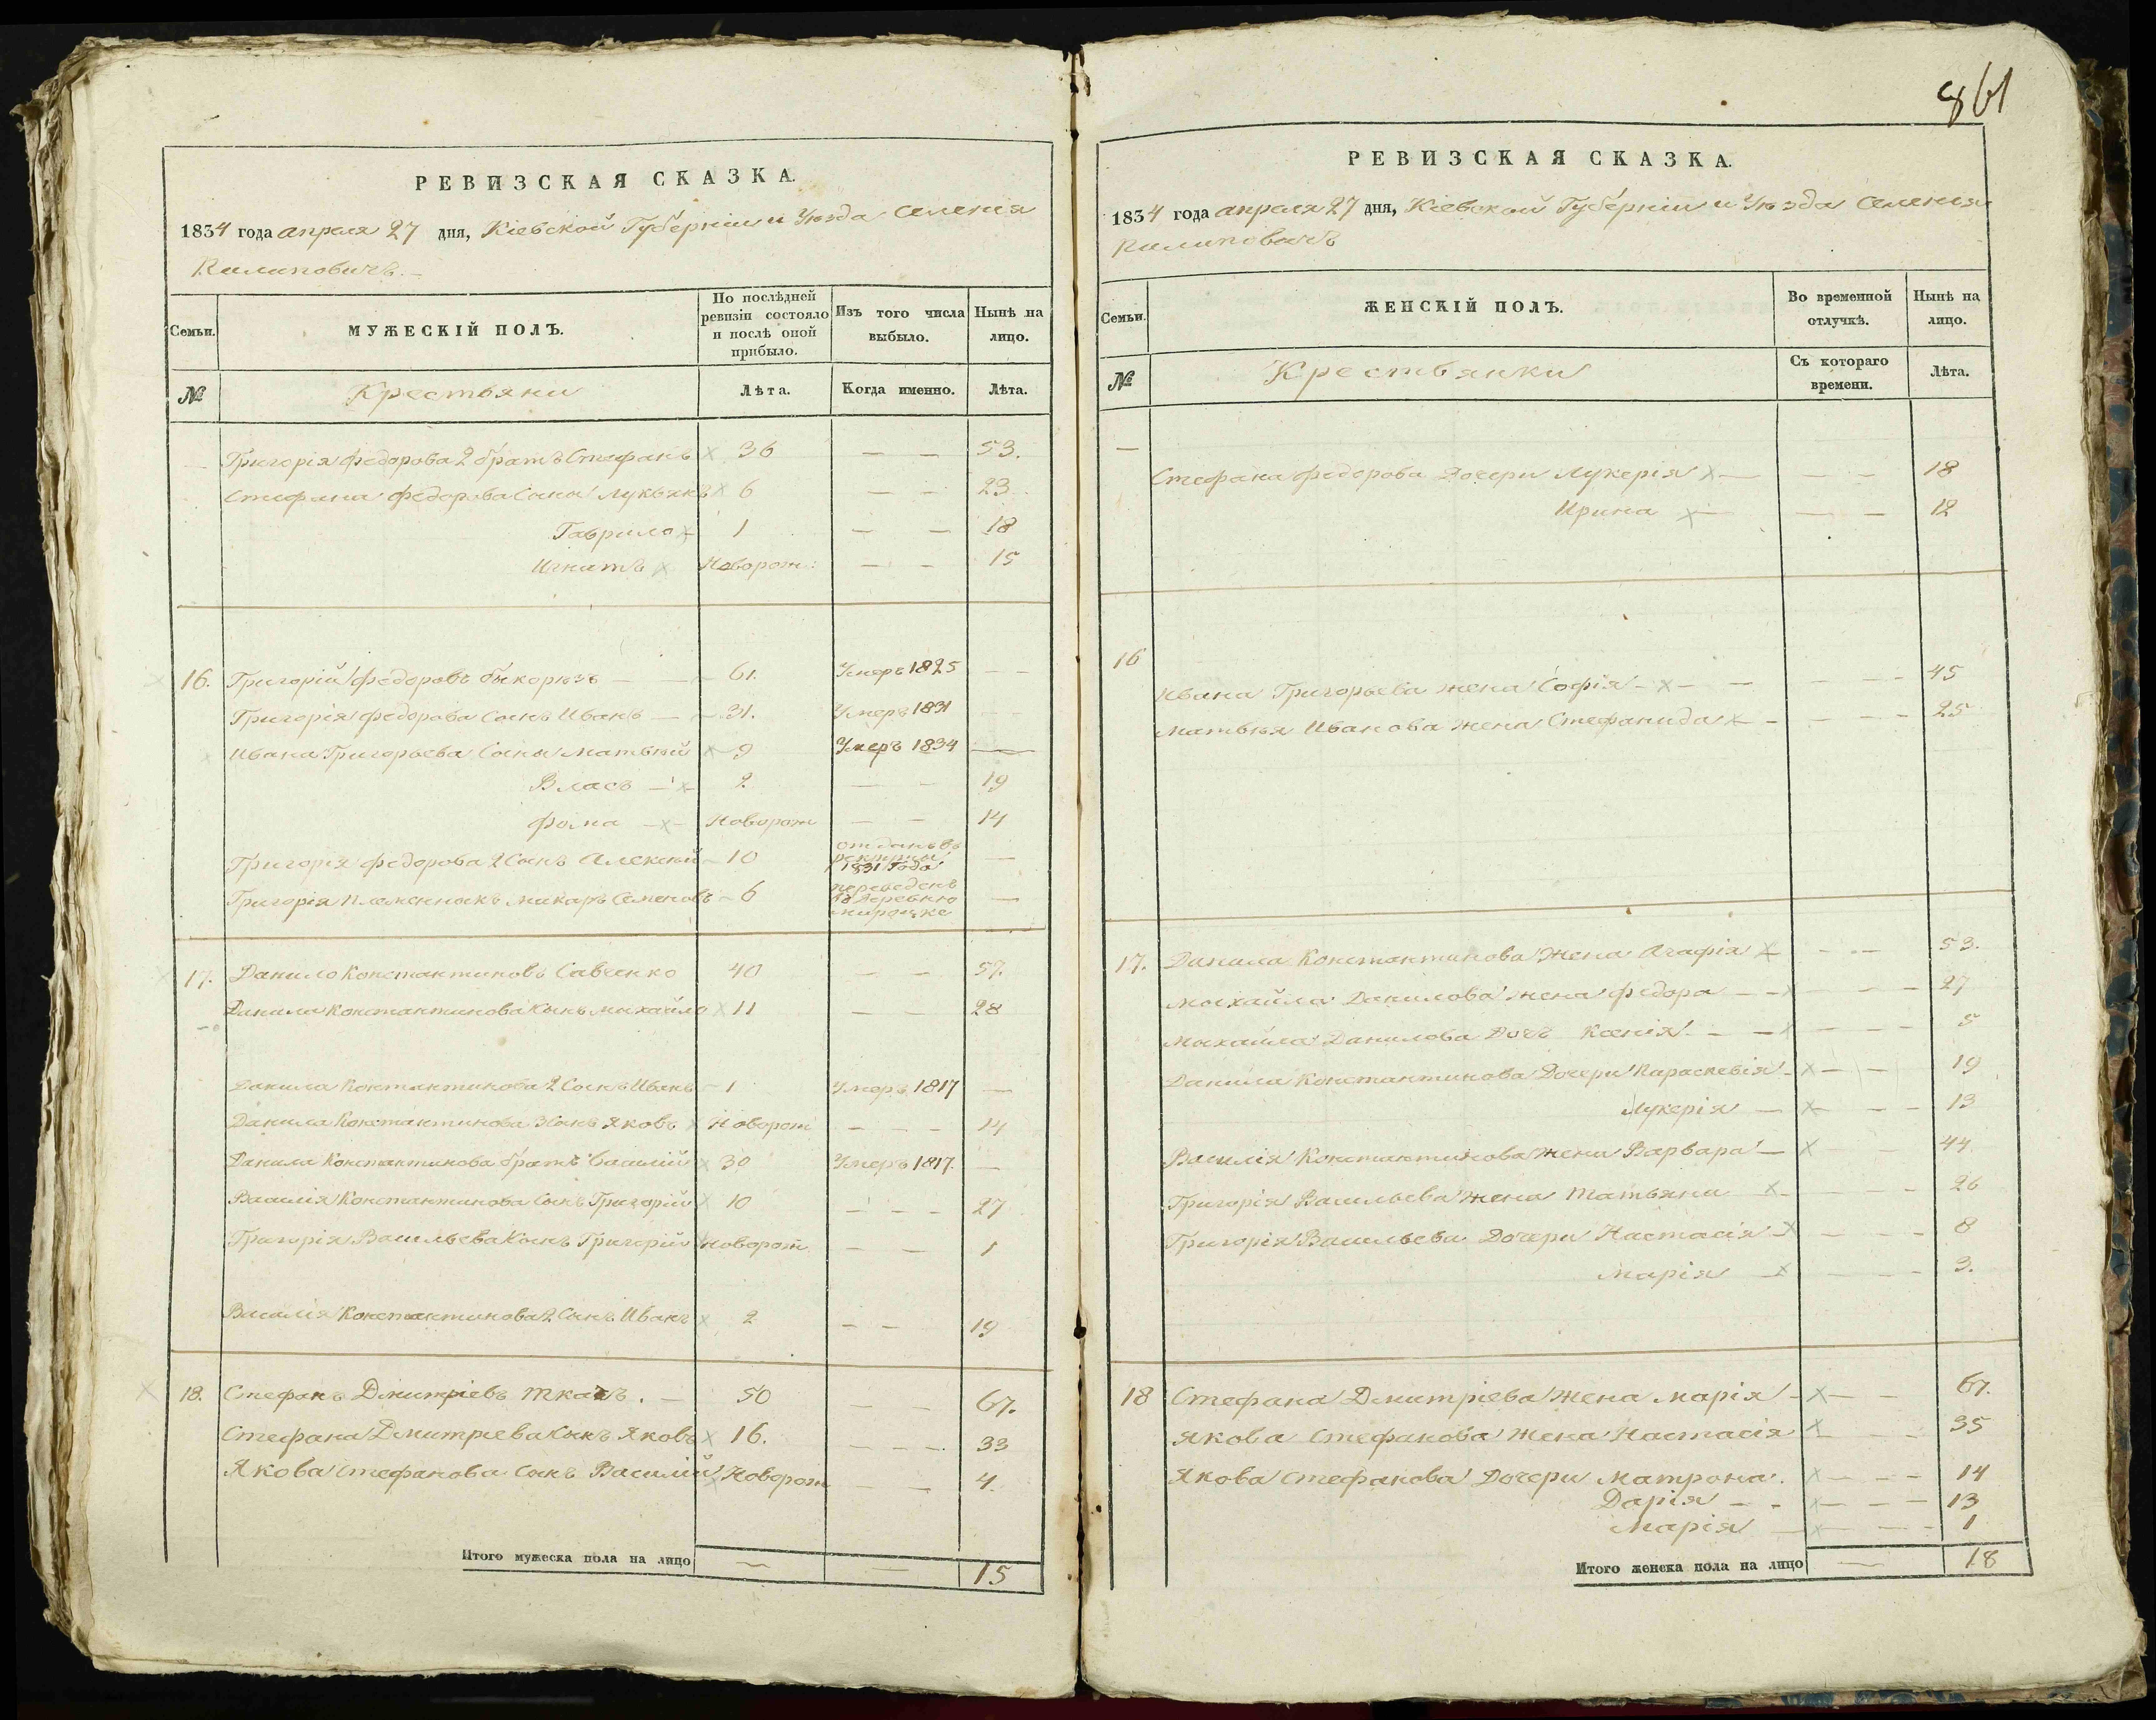 861
РЕВИЗСКАЯ СКАЗКА.
1834 года апреля 27 дня, Кіевской Губерніи и Уѣзда Селенія
Пилиповичъ.
Семьи.
МУЖЕСКІЙ ПОЛЪ.
По послѣдней ревизіи состояло и послѣ оной прибыло.
Изъ того числа выбыло.
Нынѣ на лицо.
№ Крестьяни Лѣта. Когда именно. Лѣта.
— Григорія Федорова 2 братъ Стефанъ 36 — — 53.
Стефана Федорова Сыны Лукьянъ 6 — — 23
Гаврило 1 — — 18
Игнатъ Новорож: — — 15
16. Григорій Федоровъ 61. Умеръ 1825 — —
Григорія Федорова Сынъ Иванъ — 31. Умеръ 1831 — —
Ивана Григорьева Сыны Матвѣй 9 Умеръ 1834 —
Власъ — 2 — — 19
Фома — Новорож — — 14
Григорія Федорова 2 Сынъ Алексѣй 10 отданъ въ рекруты 1831 Года —
Григорія племенникъ Макаръ Семеновъ 6 переведенъ въ деревню —
17. Данило Константиновъ Савченко 40 — — 57.
Данила Константинова Сынъ Михайло 11 — — 28
Данила Константинова 2 Сынъ Иванъ 1 Умеръ 1817 —
Данила Константинова 3 Сынъ Яковъ Новорож — — — 14
Данила Константинова братъ Василій 30 Умеръ 1817. —
Василія Константинова Сынъ Григорій 10 — — — 27
Григорія Васильева Сынъ Григорій Новорож. — — 1
Василія Константинова 2 Сынъ Иванъ 2 — — 19
18. Стефанъ Дмитріевъ Ткачъ. — 50 — — 67.
Стефана Дмитріева Сынъ Яковъ 16. — — — 33
Якова Стефанова Сынъ Василій Новорож — — 4.
Итого мужеска пола на лицо — — 15
РЕВИЗСКАЯ СКАЗКА.
1834 года апреля 27 дня, Кіевской Губерніи и Уѣзда Селенія
Пилиповичъ
Семьи.
ЖЕНСКІЙ ПОЛЪ.
Во временной отлучкѣ.
Нынѣ на лицо.
№ Крестьянки Съ котораго времени. Лѣта.
— Стефана Федорова Дочери Лукерія — — — 18
Ирина — — — 12
16
Ивана Григорьева жена Софія — — — — 45
Матвѣя Иванова жена Стефанида — — — — 25
17. Данила Константинова Жена Агафія — — 53.
Михайла Данилова жена Федора — — — — 27
Михайла Данилова Дочь Ксенія — — — — 5
Данила Константинова Дочери Параскевія — — — 19
Лукерія — — — 13
Василія Константинова Жена Варвара — — — 44
Григорія Васильева Жена Татьяна — — — 26
Григорія Васильева Дочери Настасія — — — 8
Марія — — — — 3.
18 Стефана Дмитріева Жена Марія — — — 67.
Якова Стефанова Жена Настасія — — 35
Якова Стефанова Дочери Матрона. — — — 14
Дарія — — — — — 13
Марія — — — — 1
Итого женска пола на лицо — 18